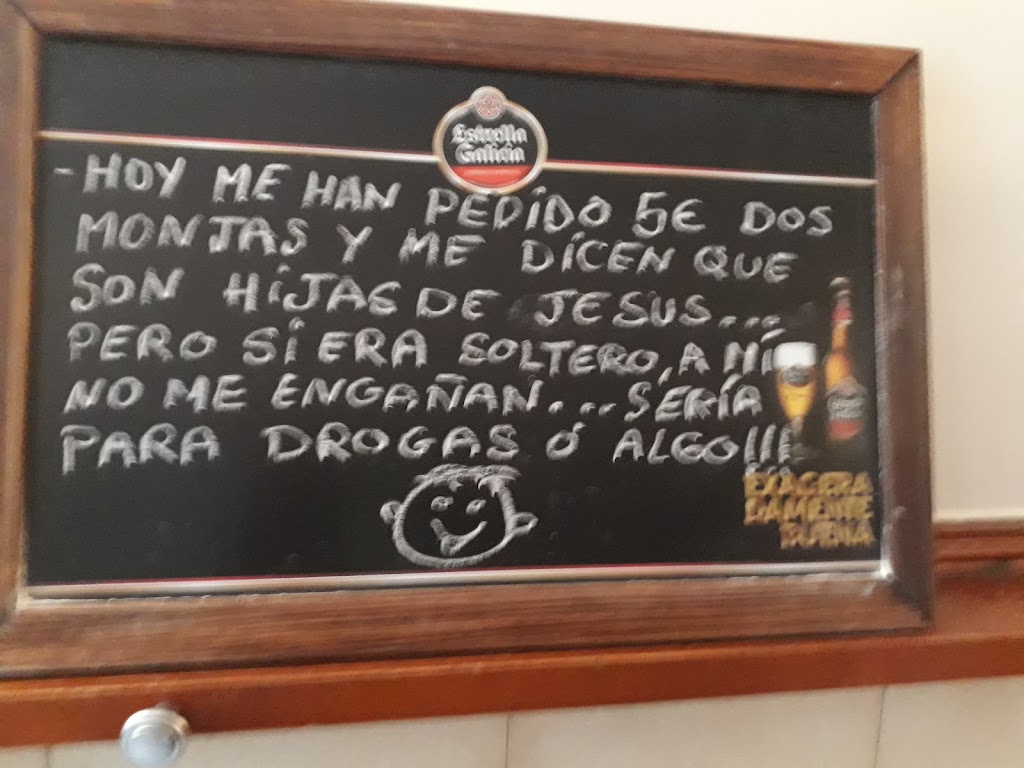 Estrella
Galicia
- HOY ME HAN PEDIDO 5€ DOS
MONJAS Y ME DICEN QUE
SON HIJAS DE JESUS...
PERO SI ERA SOLTERO, A MÍ
NO ME ENGAÑAN... SERÍA
PARA DROGAS Ó ALGO!!!
EXAGERA
DAMENTE
BUENA